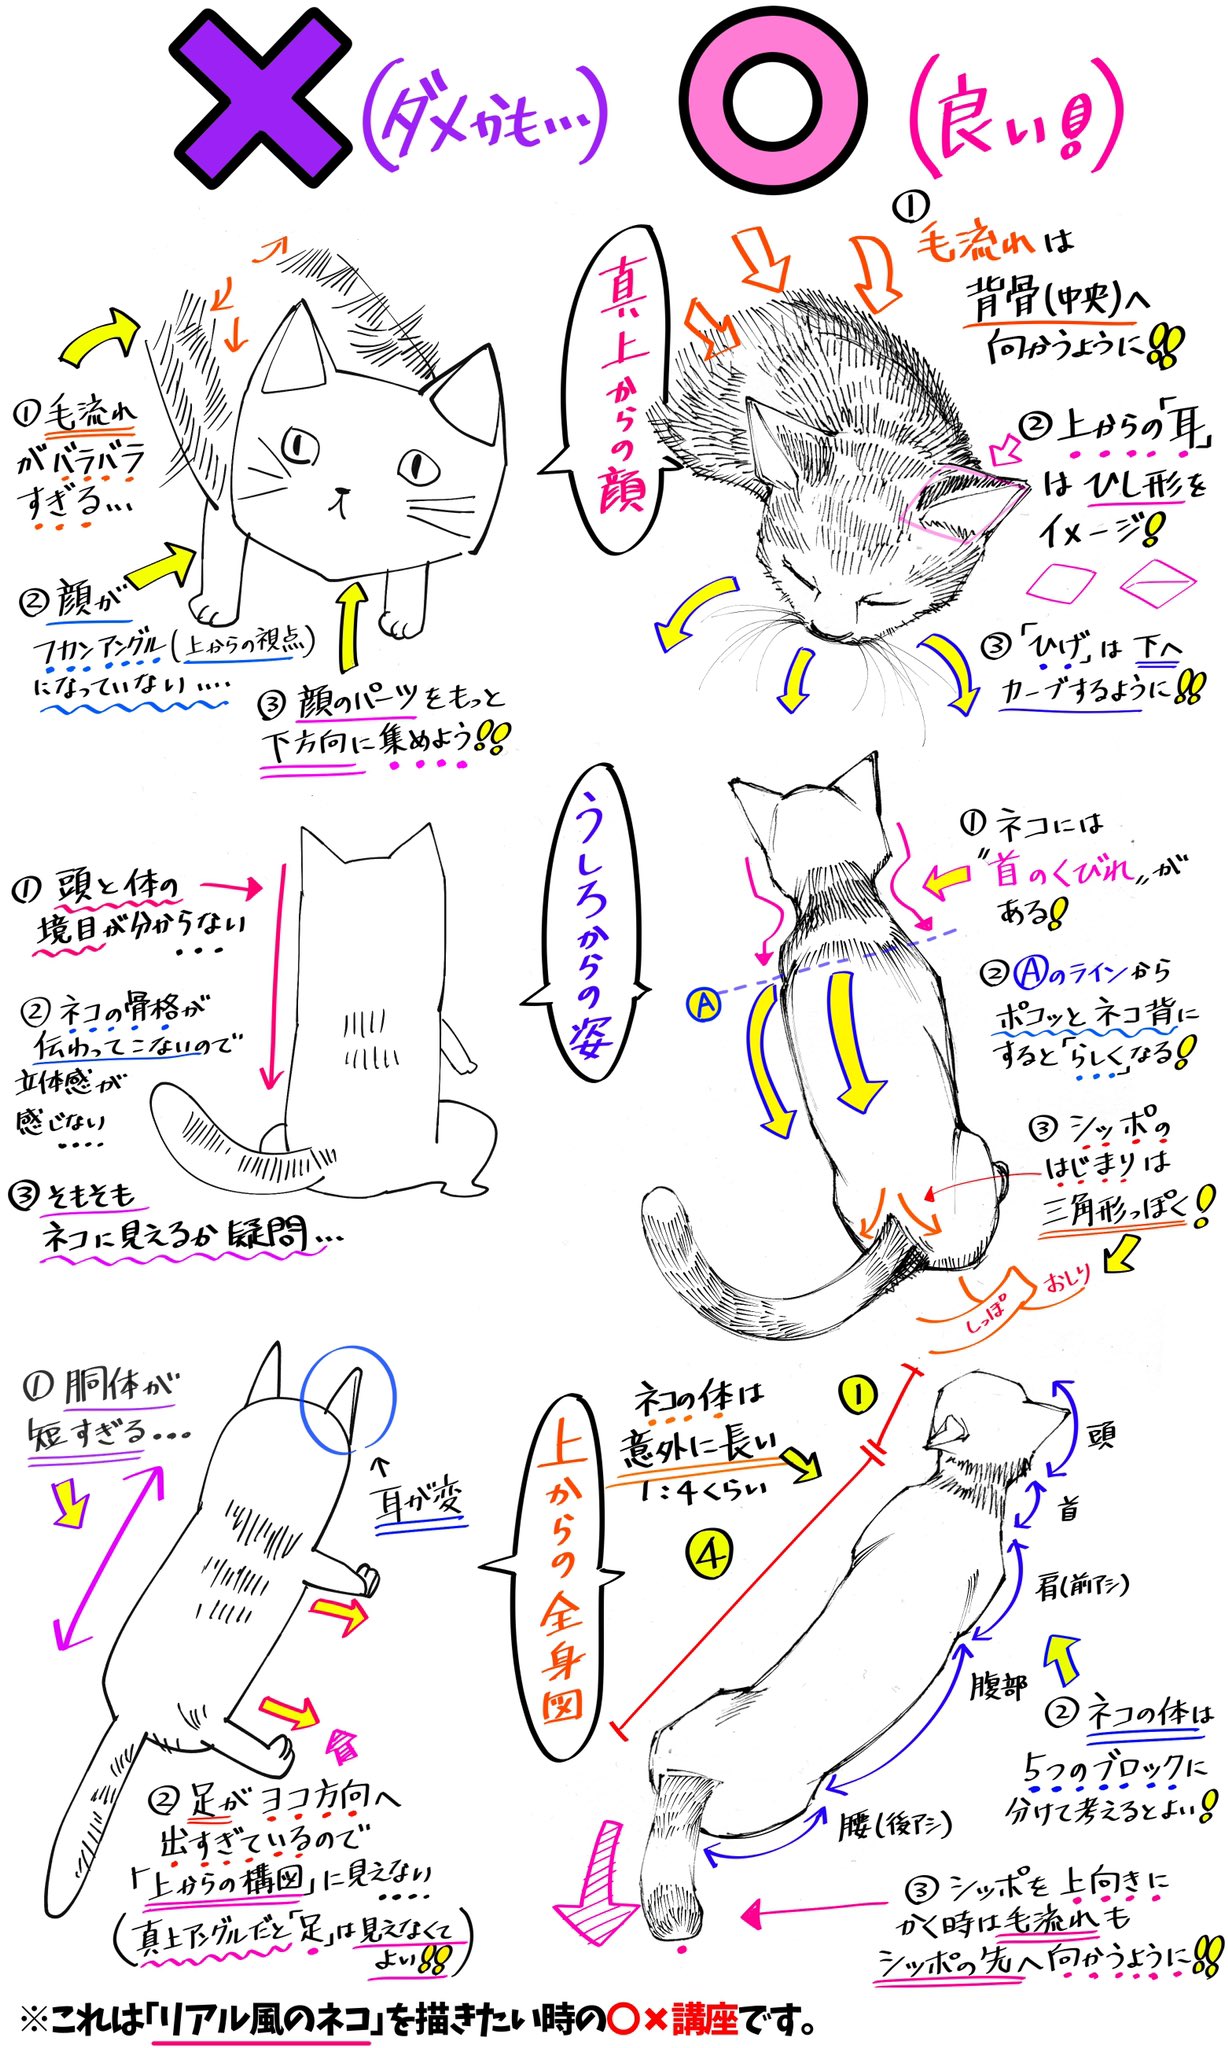 (ダメかも…)
(良い!)
真上からの顔
①毛流れ
がバラバラ
すぎる…
②顔が
フカンアングル(上からの視点)
になっていない….
③顔のパーツをもっと
下方向に集めよう!!
①
毛流れは
背骨(中央)へ
向かうように!!
②上からの「耳」
はひし形を
イメージ!
③「ひげ」は下へ
カーブするように!!
うしろからの姿
①頭と体の
境目が分からない
②ネコの骨格が
伝わってこないので
立体感が
感じない
③そもそも
ネコに見えるか疑問…
①ネコには
"首のくびれ"が
ある!
②Ⓐのラインから
ポコッとネコ背に
すると「らしく」なる!
Ⓐ
③シッポの
はじまりは
三角形っぽく!
おしり
しっぽ
上からの全身図
①胴体が
短すぎる…
↑
耳が変
②足がヨコ方向へ
出すぎているので
「上からの構図」に見えない
(真上アングルだと「足」は見えなくて
よい!!)
ネコの体は
意外に長い
1:4くらい
①
④
頭
首
肩(前アシ)
腹部
腰(後アシ)
②ネコの体は
5つのブロックに
分けて考えるとよい!
③シッポを上向きに
かく時は毛流れも
シッポの先へ向かうように!!
※これは「リアル風のネコ」を描きたい時の〇×講座です。